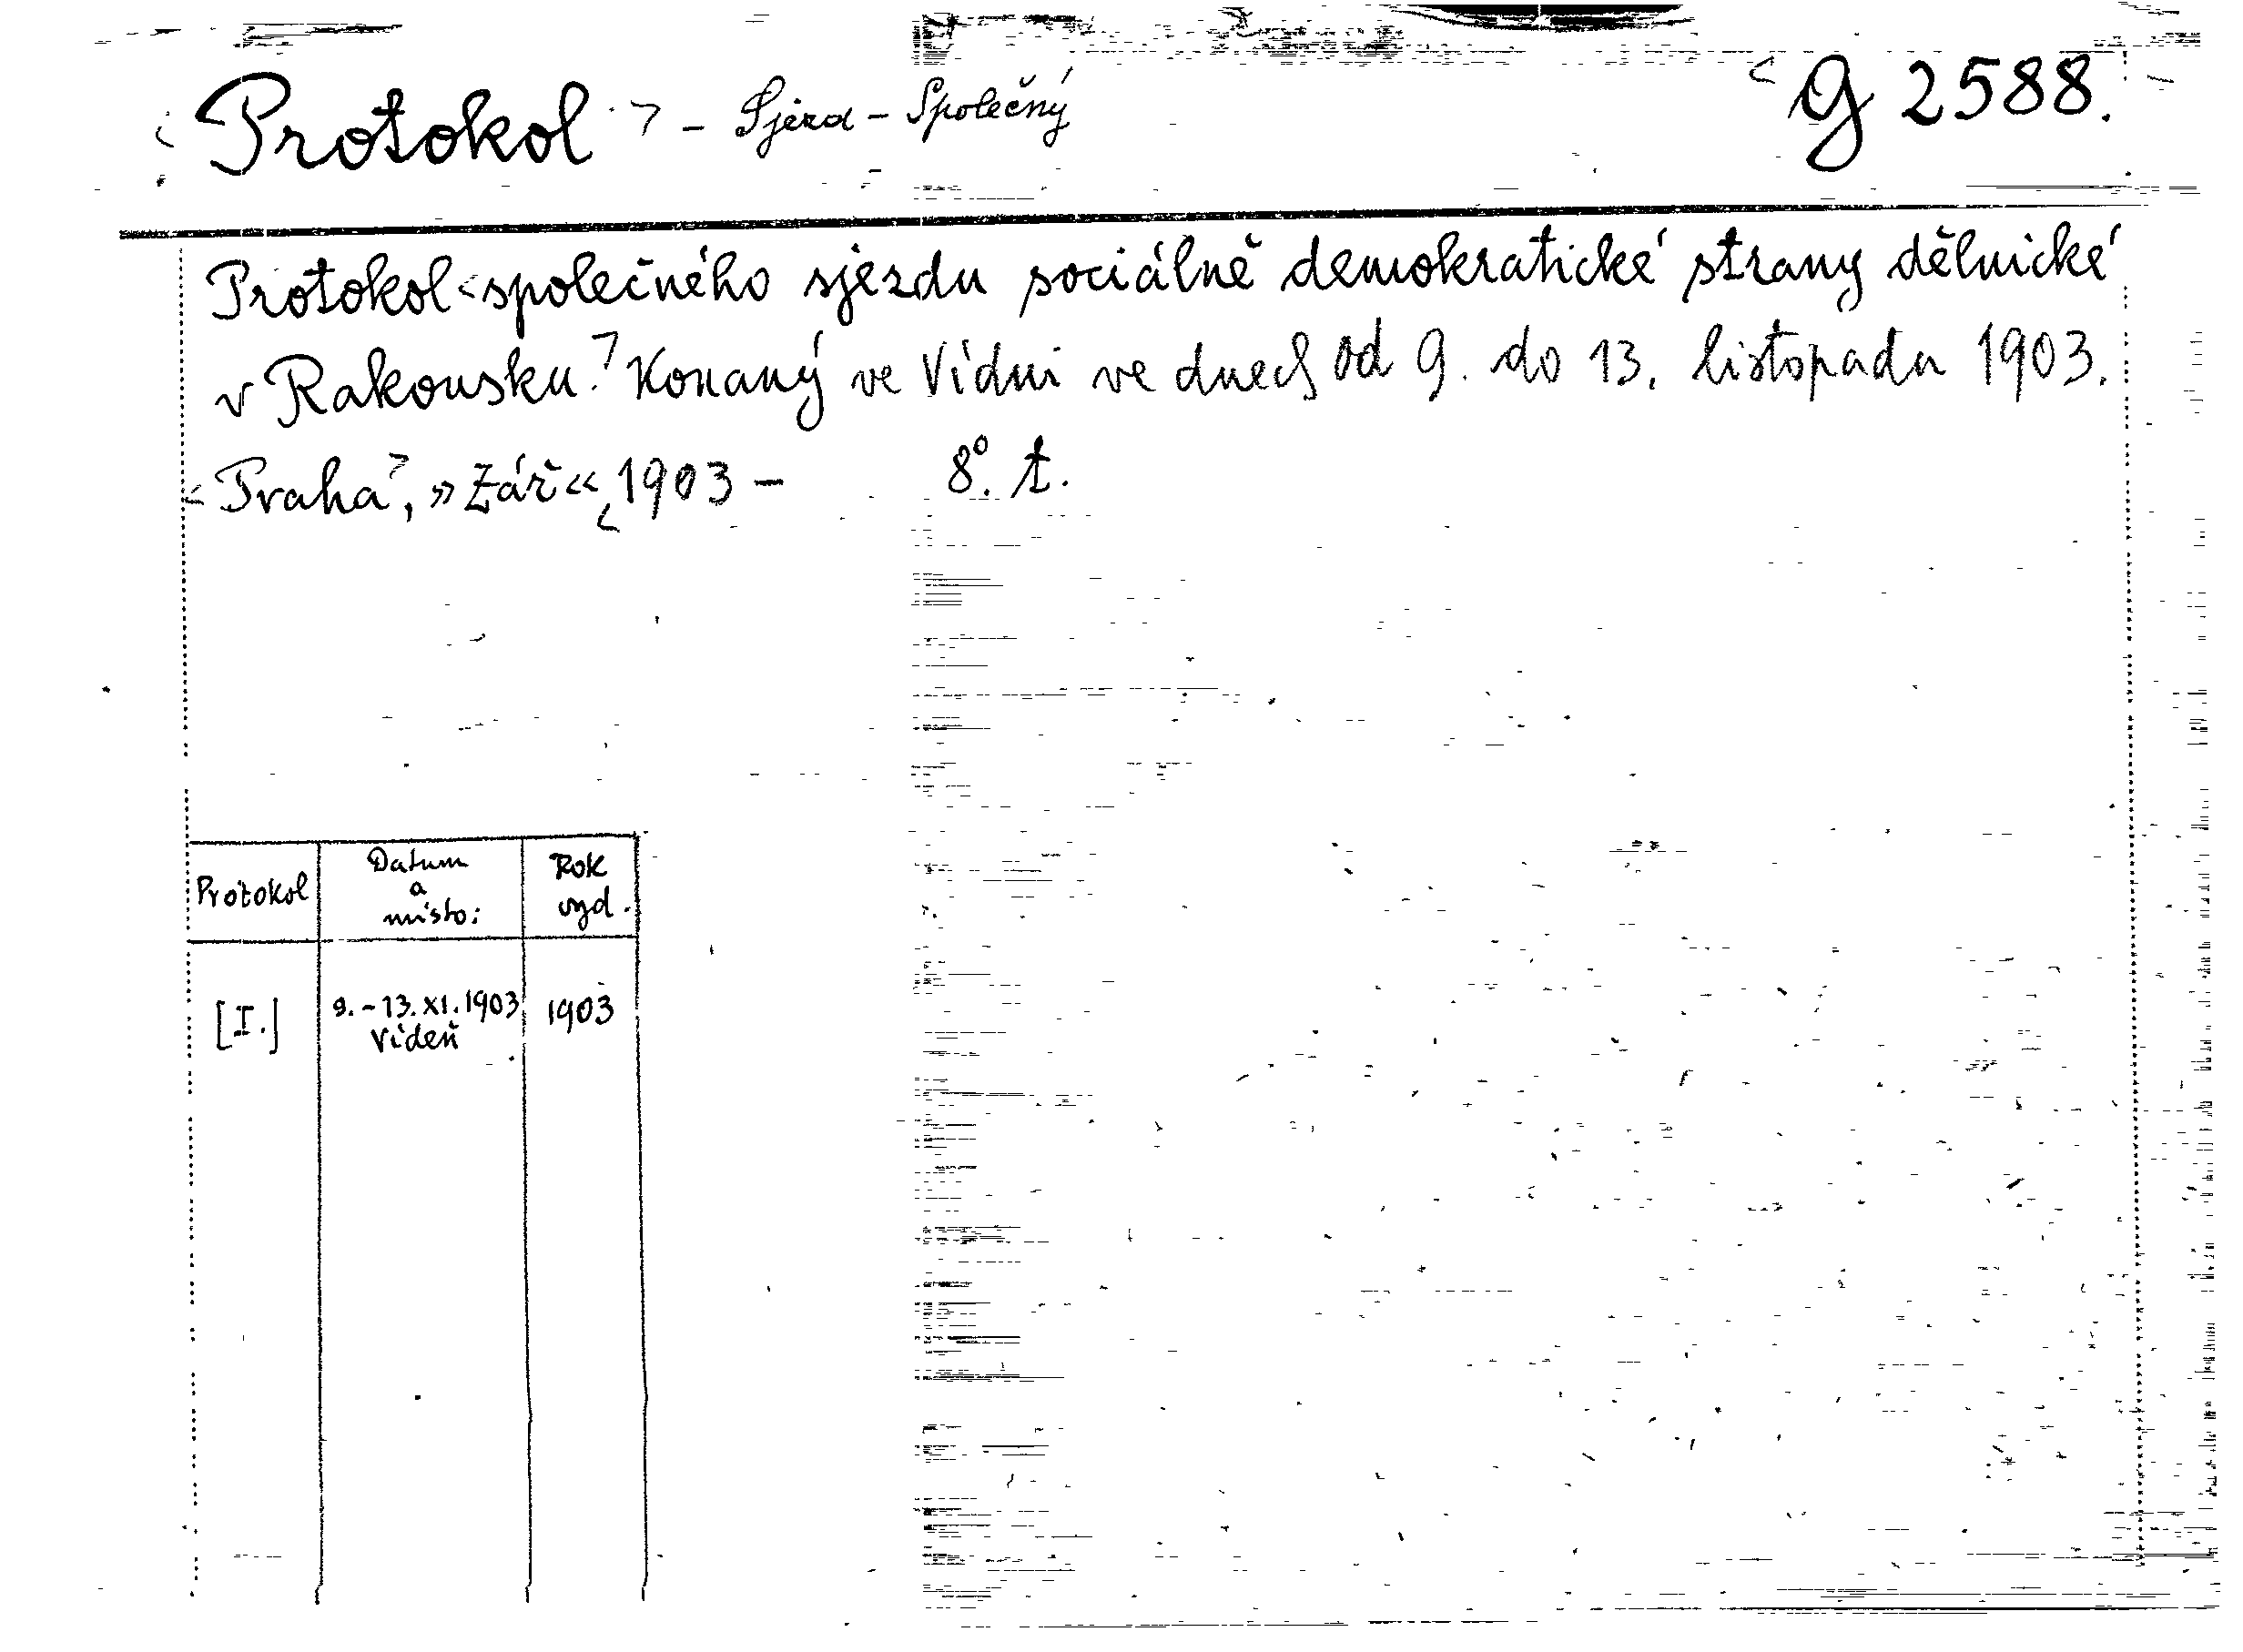 <Protokol> - Sjezd - Společný <G 2588.
Protokol <společného sjezdu sociálně demokratické strany dělnické
v Rakousku.> Konaný ve Vídni ve dnech od 9. do 13. listopadu 1903.
<Praha>, »Zář«, <1903 - 8°. t.
Protokol Datum a místo: Rok vyd.
[I.] 9.-13.XI.1903 Vídeň 1903